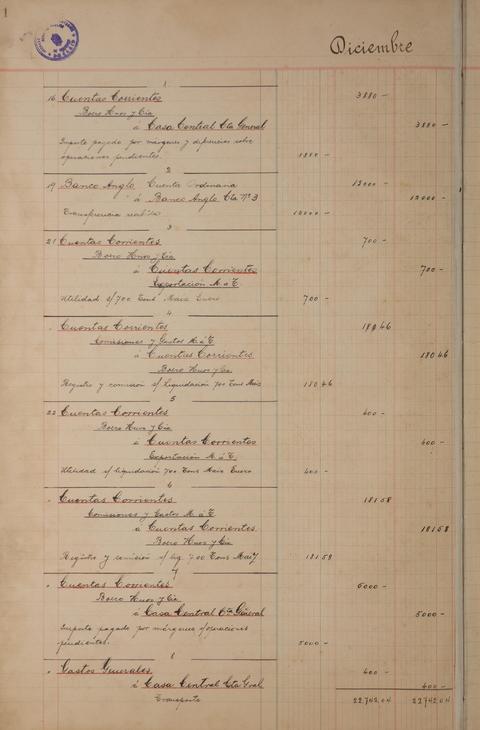 1
Diciembre
1
16 Cuentas Corrientes 3880 -
Bozzo Hnos y Cía
á Casa Central Cta General 3880 -
Importe pagado por márgenes y diferencias sobre
operaciones pendientes.
2
19 Banco Anglo Cuenta Ordinaria 12000 -
á Banco Anglo Cta Nº 3 12000 -
Transferencia 12000 -
3
21 Cuentas Corrientes 700 -
Bozzo Hnos y Cía
á Cuentas Corrientes 700 -
Exportación M. á T.
Utilidad s/700 Tons Maiz Enero 700 -
4
Cuentas Corrientes
Comisiones y Gastos M. á T.
á Cuentas Corrientes 180 46
Bozzo Hnos y Cía
Registro y comisión s/ Liquidación 700 Tons Maiz 180 46
5
22 Cuentas Corrientes 400 -
Bozzo Hnos y Cía
á Cuentas Corrientes 400 -
Exportación M. á T.
Utilidad s/ liquidación 700 Tons Maiz Enero 400 -
6
Cuentas Corrientes 181 58
Comisiones y Gastos M. á T.
á Cuentas Corrientes 181 58
Bozzo Hnos y Cía
Registro y comisión s/ liq. 700 Tons Maiz 181 58
7
Cuentas Corrientes 5000 -
Bozzo Hnos y Cía
á Casa Central Cta General 5000 -
Importe pagado por márgenes s/operaciones
pendientes. 5000 -
Gastos Generales 400 -
á Casa Central Cta Gral 400 -
Transporte 22.742,04 22.742,04